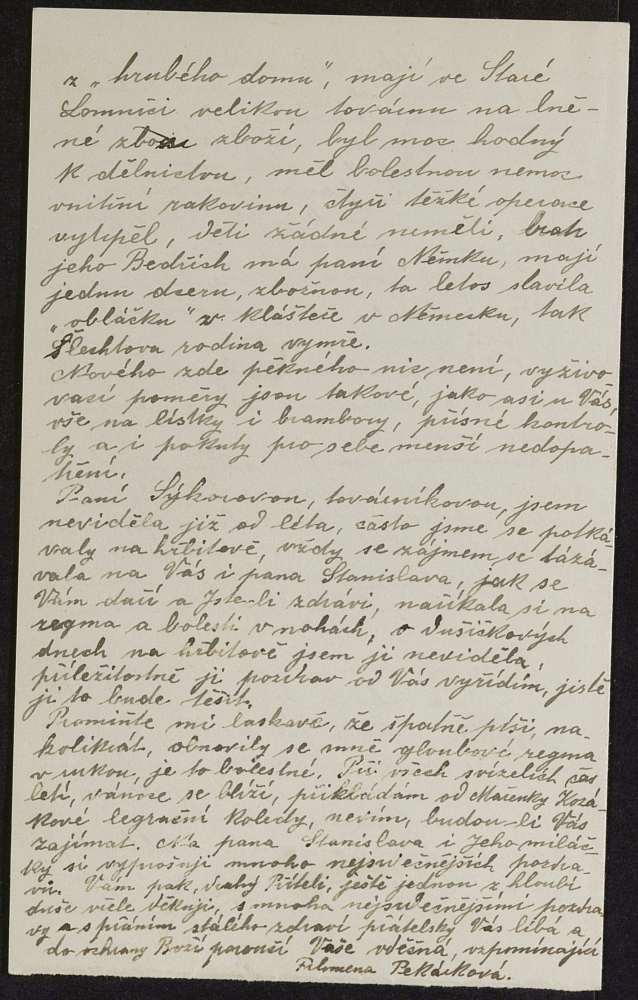 z „hrubého domu“, mají ve Staré
Lomnici velikou továrnu na lně-
né zboží, byl moc hodný
k dělnictvu, měl bolestnou nemoc
vnitřní rakovinu, čtyři těžké operace
vytrpěl, děti žádné neměli, bratr
jeho Bedřich má paní Němku, mají
jednu dceru, zbožnou, ta letos slavila
„obláčku“ v klášteře v Německu, tak
Šlechtova rodina vymře.
Nového zde pěkného nic není, vyživo-
vací poměry jsou takové, jako asi u Vás,
vše na lístky i brambory, přísné kontro-
ly a i pokuty pro sebe menší nedopa-
tření.
Paní Sýkorovou, továrníkovou, jsem
neviděla již od léta, často jsme se potká-
valy na hřbitově, vždy se zájmem se tázá-
vala na Vás i pana Stanislava, jak se
Vám daří a Jste-li zdrávi, naříkala si na
regma a bolesti v nohách, o dušičkových
dnech na hřbitově jsem ji neviděla,
příležitostně jí pozdrav od Vás vyřídím, jistě
ji to bude těšit.
Promiňte mi laskavě, že špatně píši, ně-
kolikrát, obnovily se mně gloubové regma
v rukou, je to bolestné. Při všech svízelích čas
letí, vánoce se blíží, přikládám od Mařenky Kozá-
kové legrační koledy, nevím, budou-li Vás
zajímat. Na pana Stanislava i Jeho miláč-
ky si vyprošuji mnoho nejsrdečnějších pozdra-
vů. Vám pak, drahý Příteli, ještě jednou z hloubi
duše vřele děkuji, s mnoha nejsrdečnějšími pozdra
vy a s přáním stálého zdraví přátelsky Vás líbá a
do ochrany Boží poroučí Vaše vděčná, vzpomínající
Filomena Pekárková.